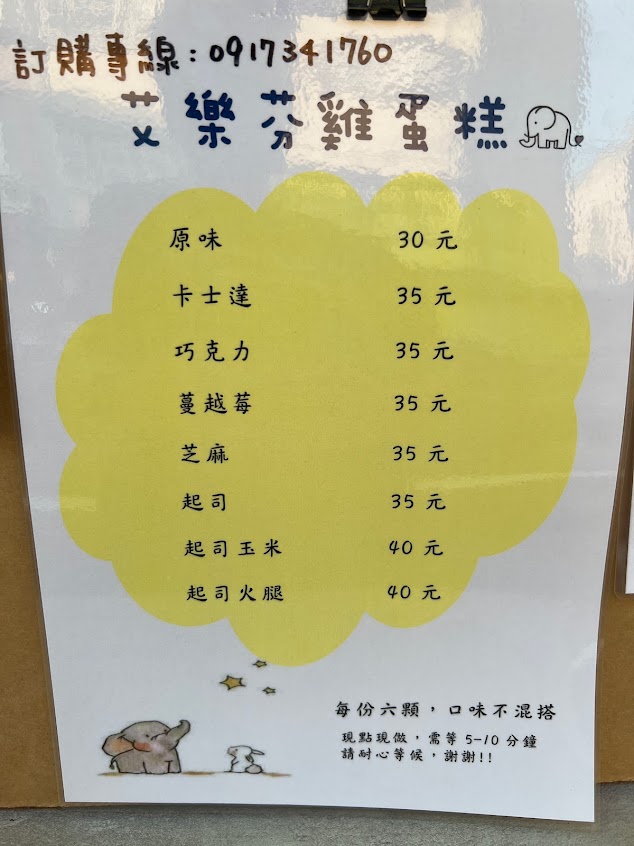 訂購專線：0917341760
艾樂芬雞蛋糕
原味 30 元
卡士達 35 元
巧克力 35 元
蔓越莓 35 元
芝麻 35 元
起司 35 元
起司玉米 40 元
起司火腿 40 元
每份六顆，口味不混搭
現點現做，需等 5-10 分鐘
請耐心等候，謝謝!!